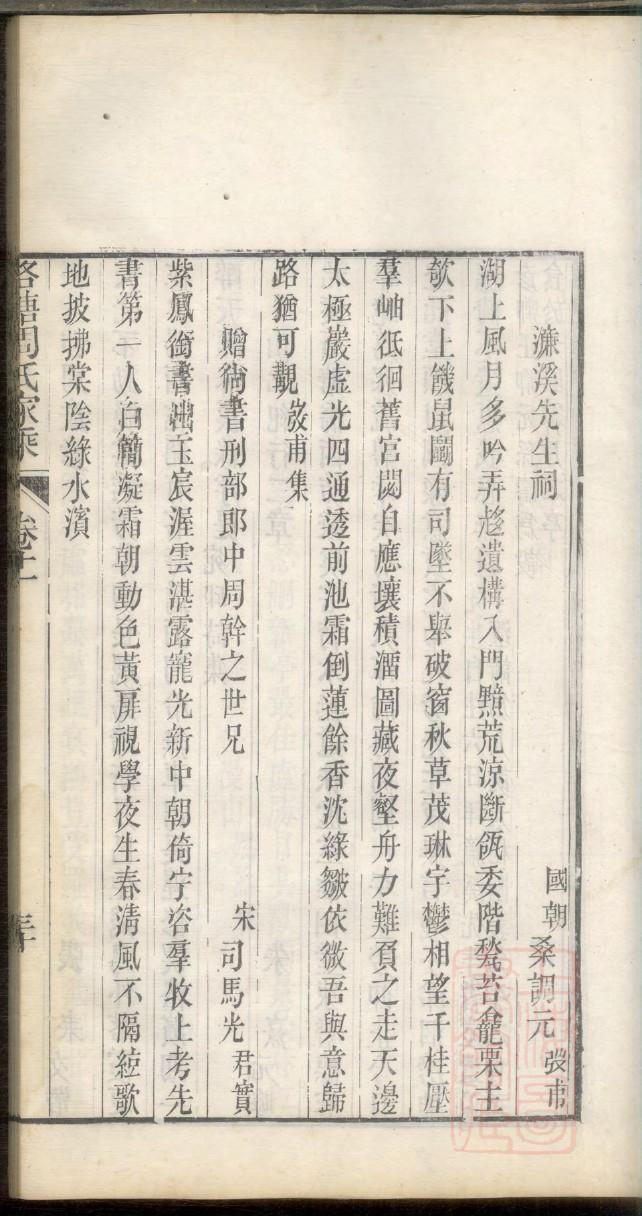 濂溪先生祠
國朝 桑調元 弢甫
湖上風月多吟弄趁遺構入門黯荒涼斷瓴委階甃苔龕栗主
欹下上饑鼠鬭有司墜不舉破窗秋草茂琳宇鬱相望千桂壓
羣岫低徊舊宮闕自應壤積溜圖藏夜壑舟力難負之走天邊
太極巖虛光四通透前池霜倒蓮餘香沈綠皺依微吾與意歸
路猶可觀 弢甫集
贈尙書刑部郎中周幹之世兄
宋 司馬光 君實
紫鳳銜書出玉宸渥雲湛露寵光新中朝倚守咨羣牧上考先
書第一人白簡凝霜朝動色黃扉視學夜生春淸風不隔絃歌
地披拂棠陰綠水濱
周氏家乘 卷十一